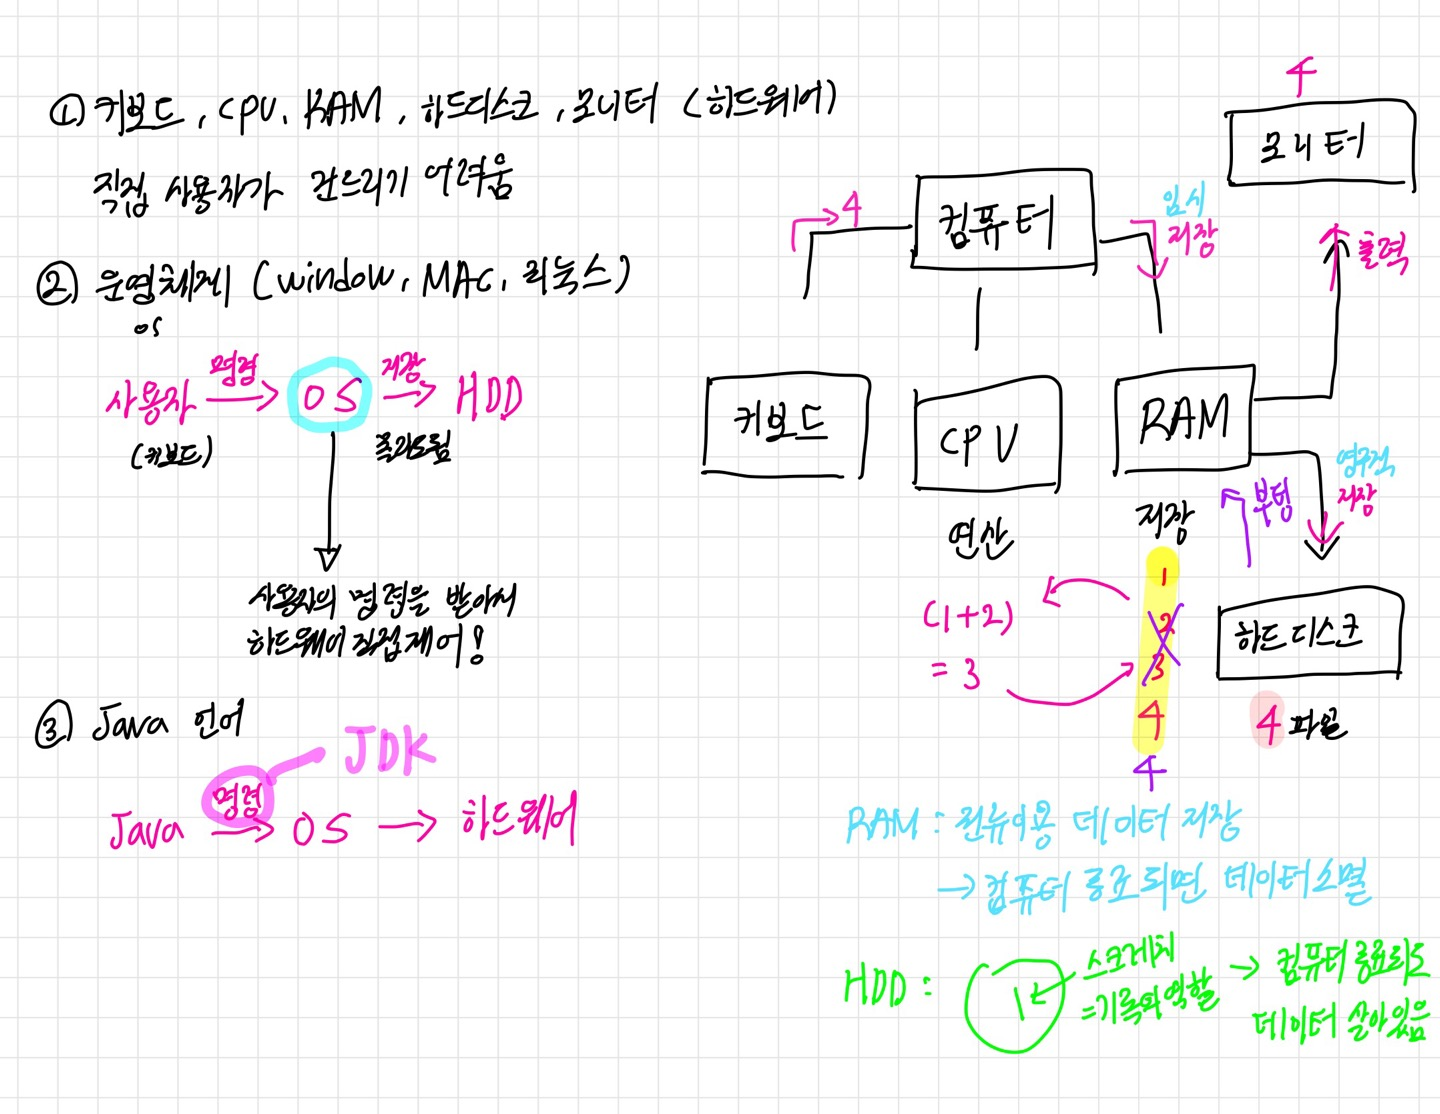 ① 키보드, CPU, RAM, 하드디스크, 모니터 (하드웨어)
직접 사용자가 건드리기 어려움
② 운영체제 (window, MAC, 리눅스)
OS
사용자 명령 → OS 저장 → HDD
(키보드)
사용자의 명령을 받아서
하드웨어 직접제어!
③ Java 언어
JDK
Java 명령 → OS → 하드웨어
4
모니터
→ 4
컴퓨터
임시
저장
출력
키보드
CPU
RAM
연산
저장
부팅
영구적
저장
하드디스크
4 파일
(1+2)
= 3
1
2
3
4
4
RAM : 전류이용 데이터 저장
→ 컴퓨터 종료되면 데이터소멸
HDD : 스크레치
=기록의역할
→ 컴퓨터 종료되도
데이터 살아있음